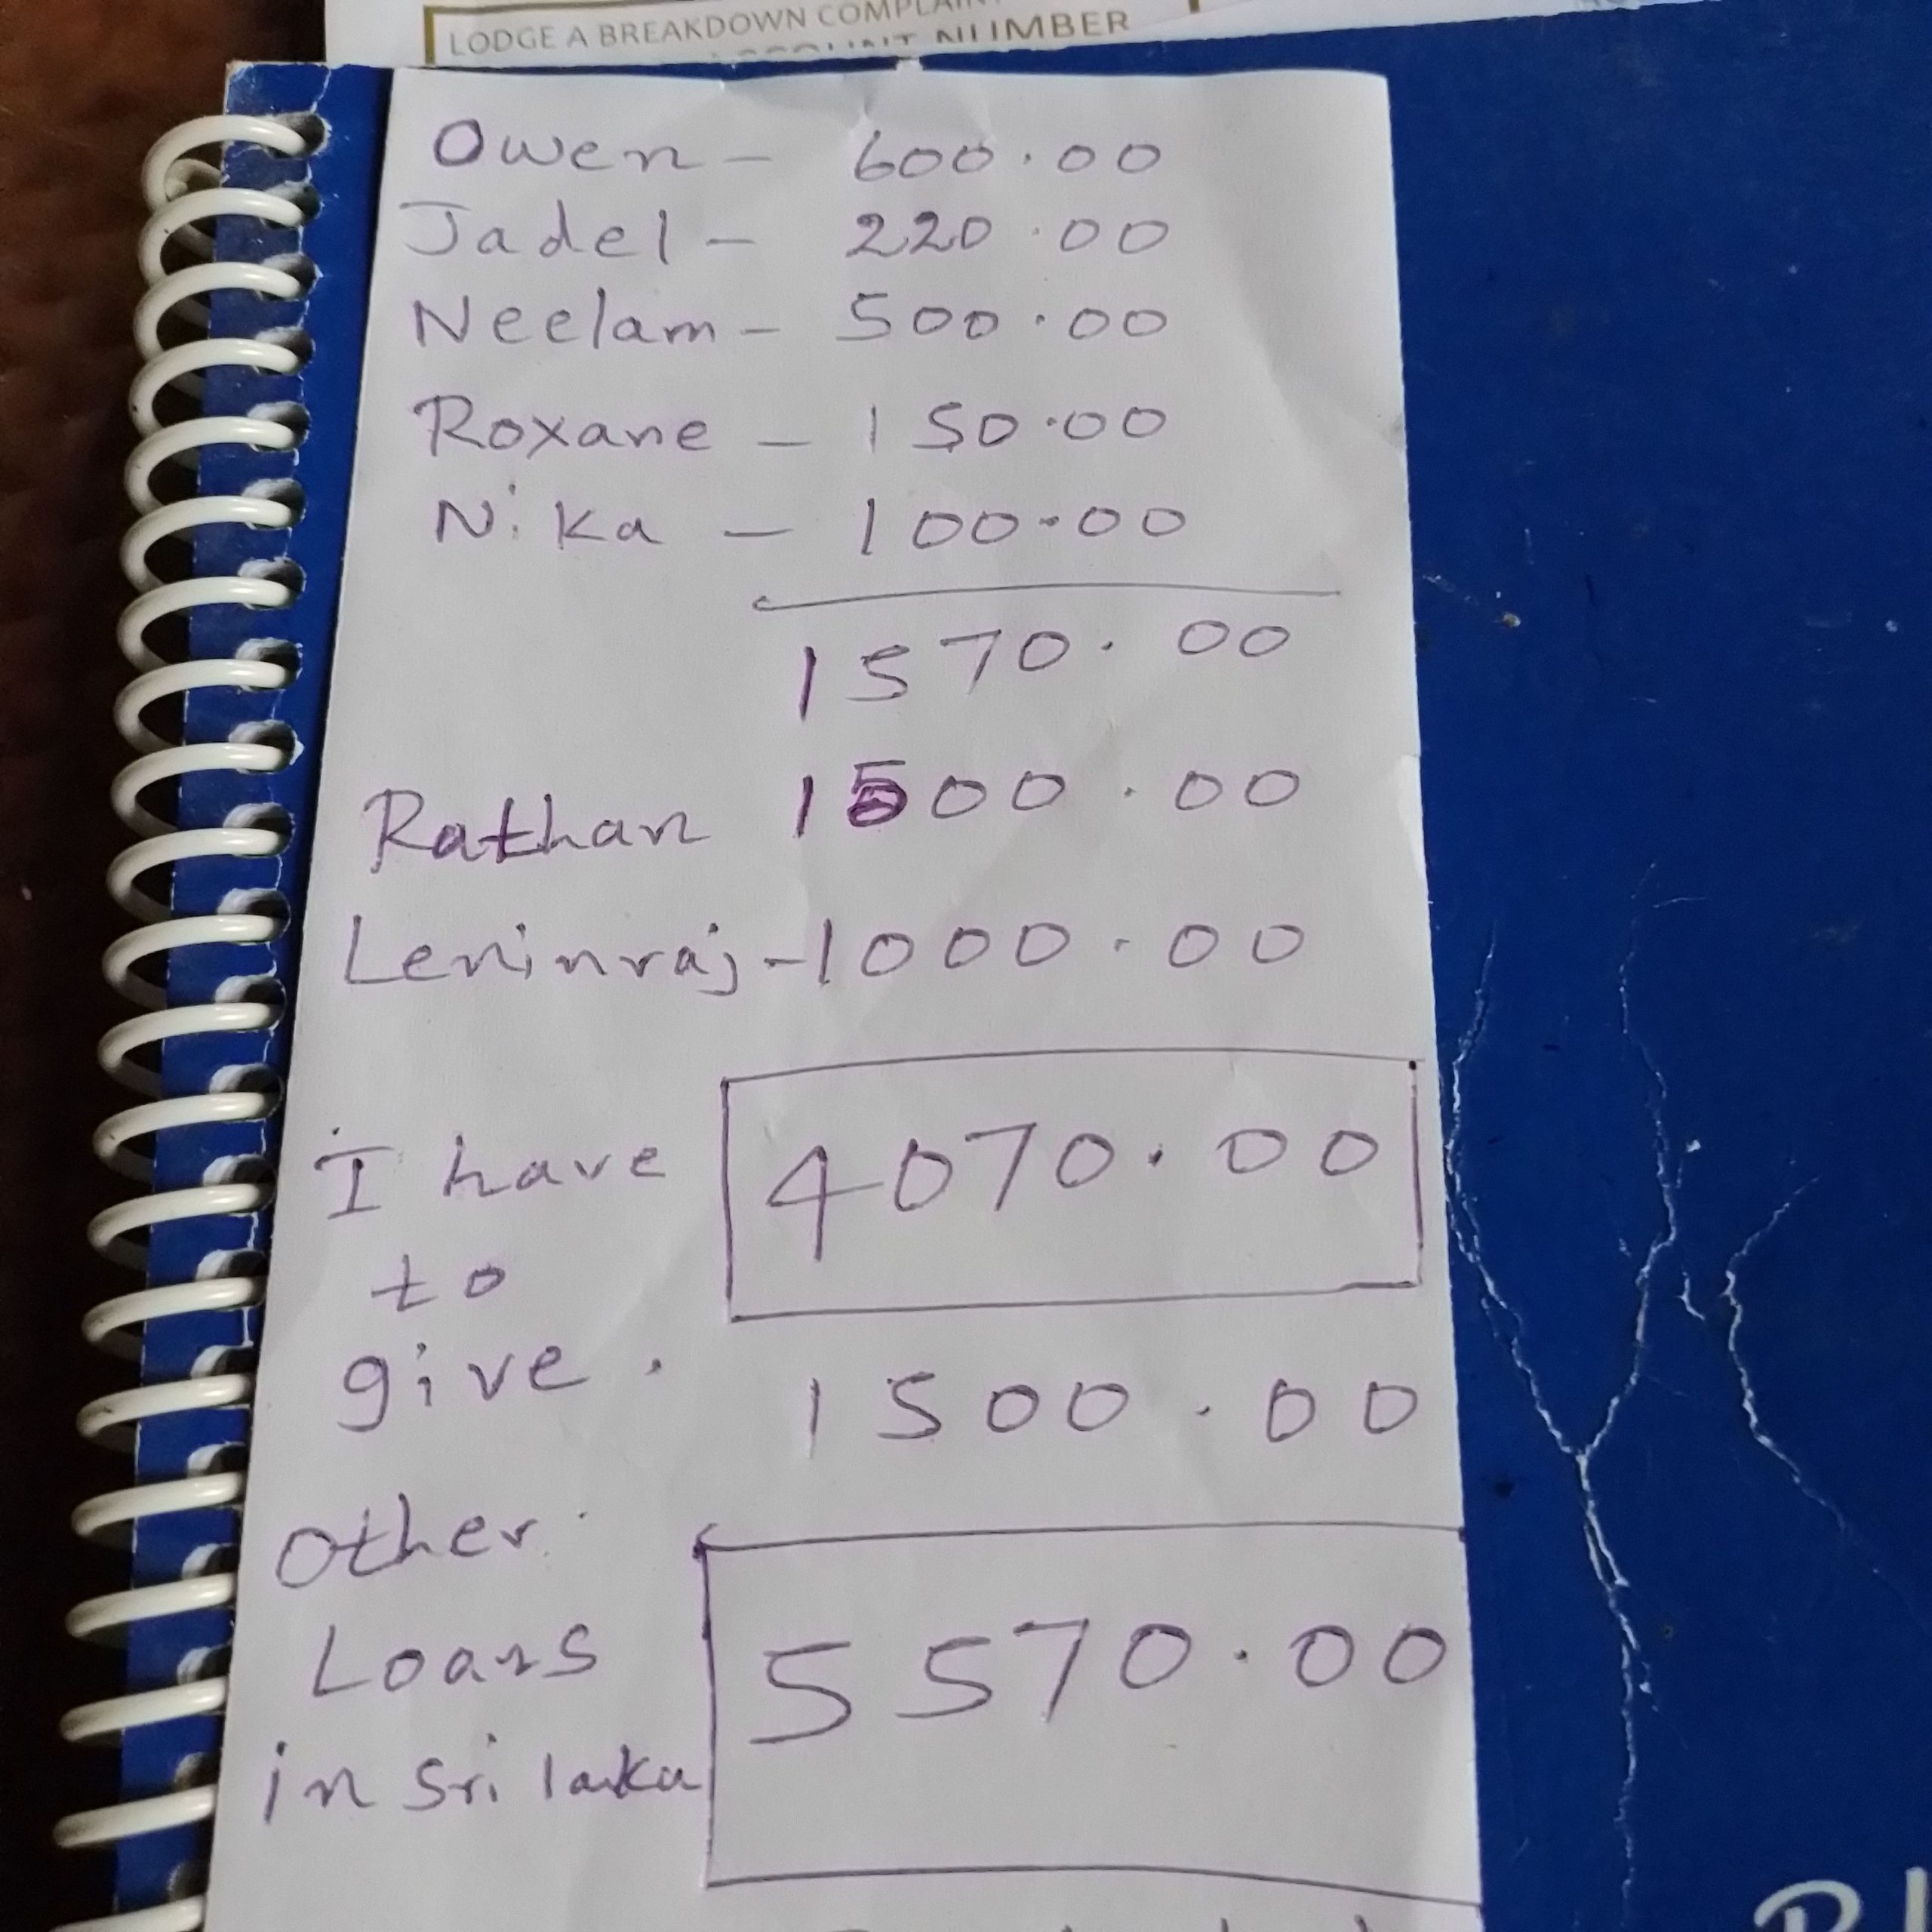 LODGE A BREAKDOWN COMPLAIN
NUMBER
Owen - 600.00
Jadel - 220.00
Neelam - 500.00
Roxane - 150.00
Nika - 100.00
1570.00
Rathan 1500.00
Leninraj - 1000.00
I have 4070.00
to
give. 1500.00
other
Loans 5570.00
in Sri lanka